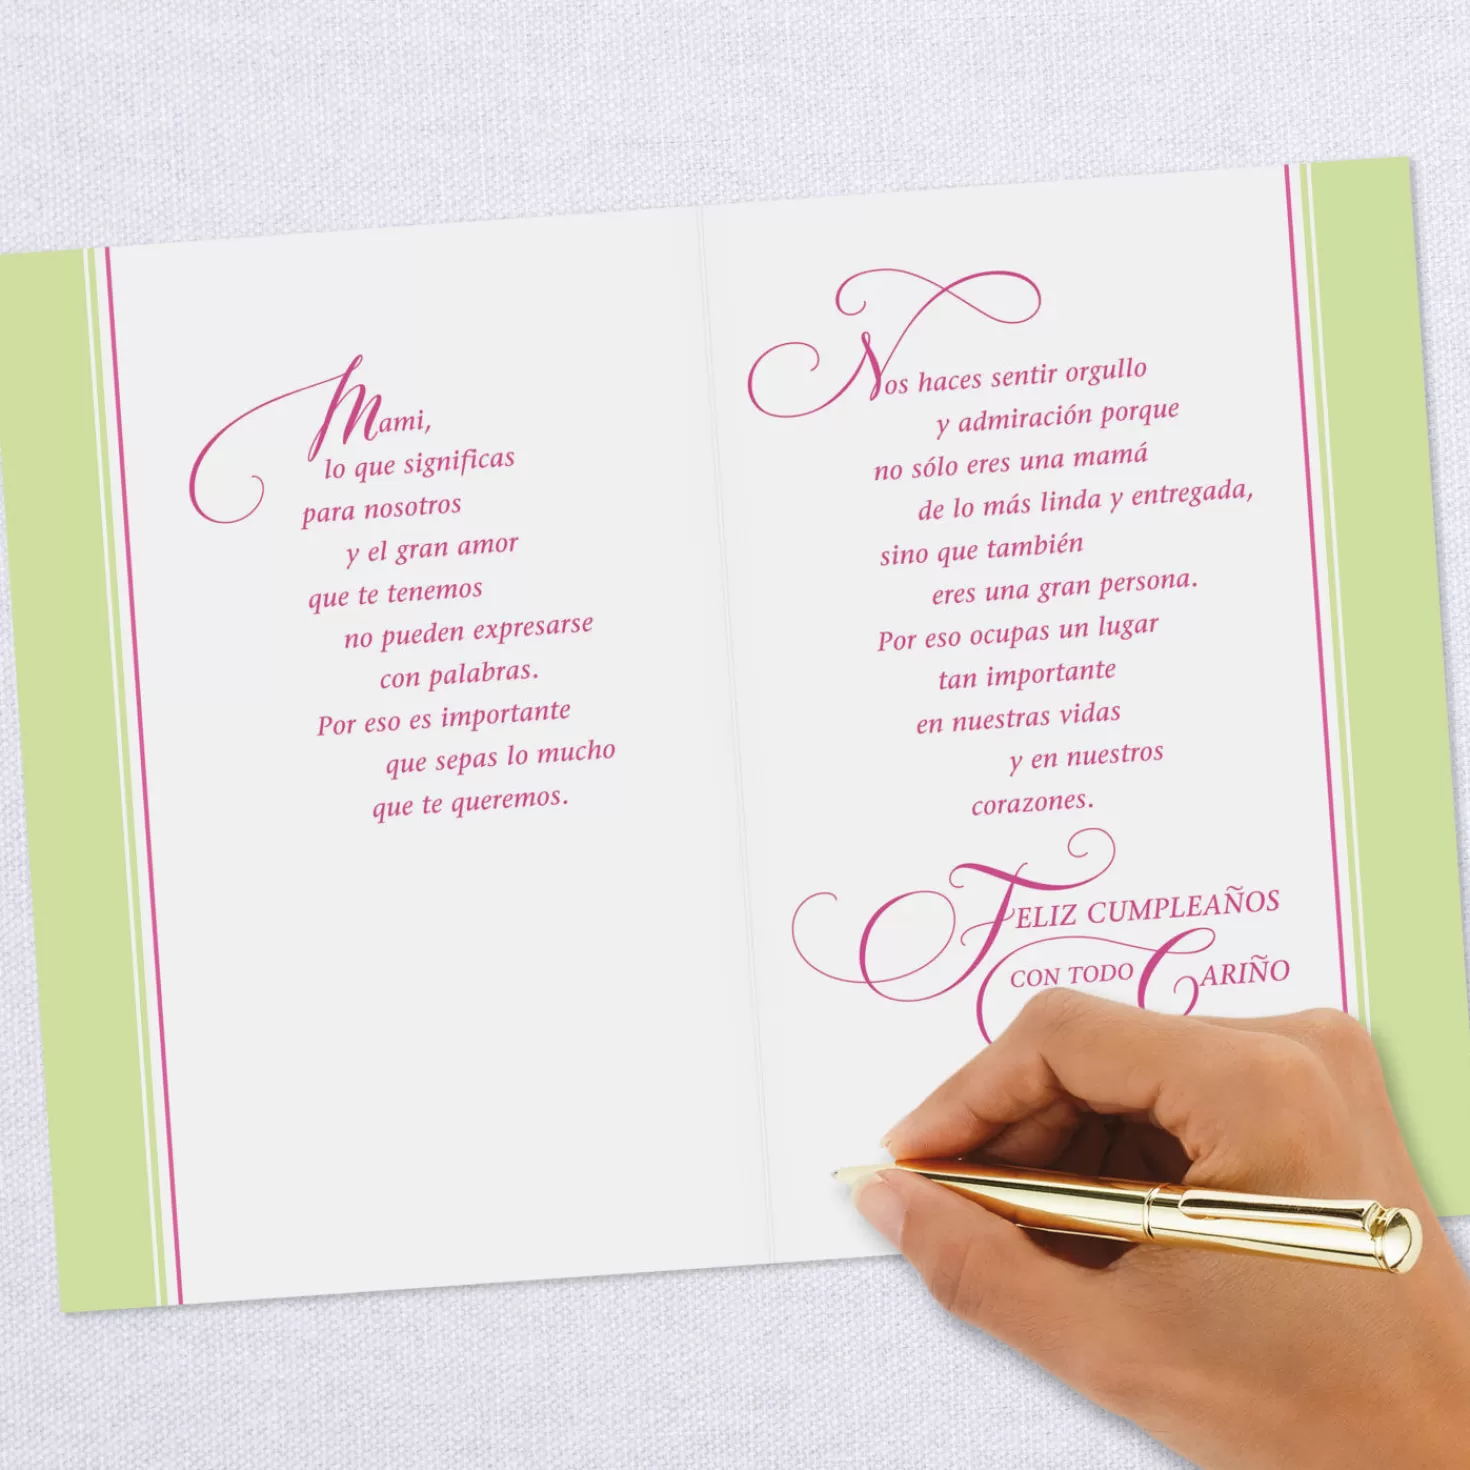 Mami,
lo que significas
para nosotros
y el gran amor
que te tenemos
no pueden expresarse
con palabras.
Por eso es importante
que sepas lo mucho
que te queremos.
Nos haces sentir orgullo
y admiración porque
no sólo eres una mamá
de lo más linda y entregada,
sino que también
eres una gran persona.
Por eso ocupas un lugar
tan importante
en nuestras vidas
y en nuestros
corazones.
FELIZ CUMPLEAÑOS
CON TODO CARIÑO